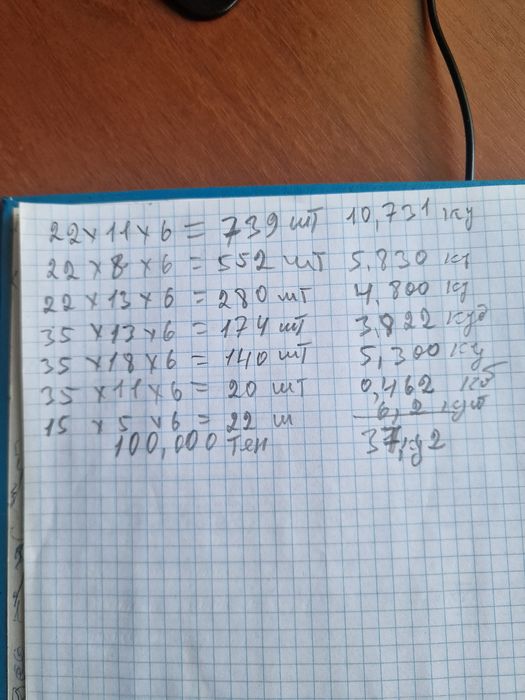 22×11×6 = 739 шт 10,731 ку
22×8×6 = 552 шт 5,830 ку
22×13×6 = 280 шт 4,800 ку
35×13×6 = 174 шт 3,822 куб
35×18×6 = 140 шт 5,300 ку
35×11×6 = 20 шт 0,462 куб
15×5×6 = 22 ш 6,2 куб
100,000 тен 37,2